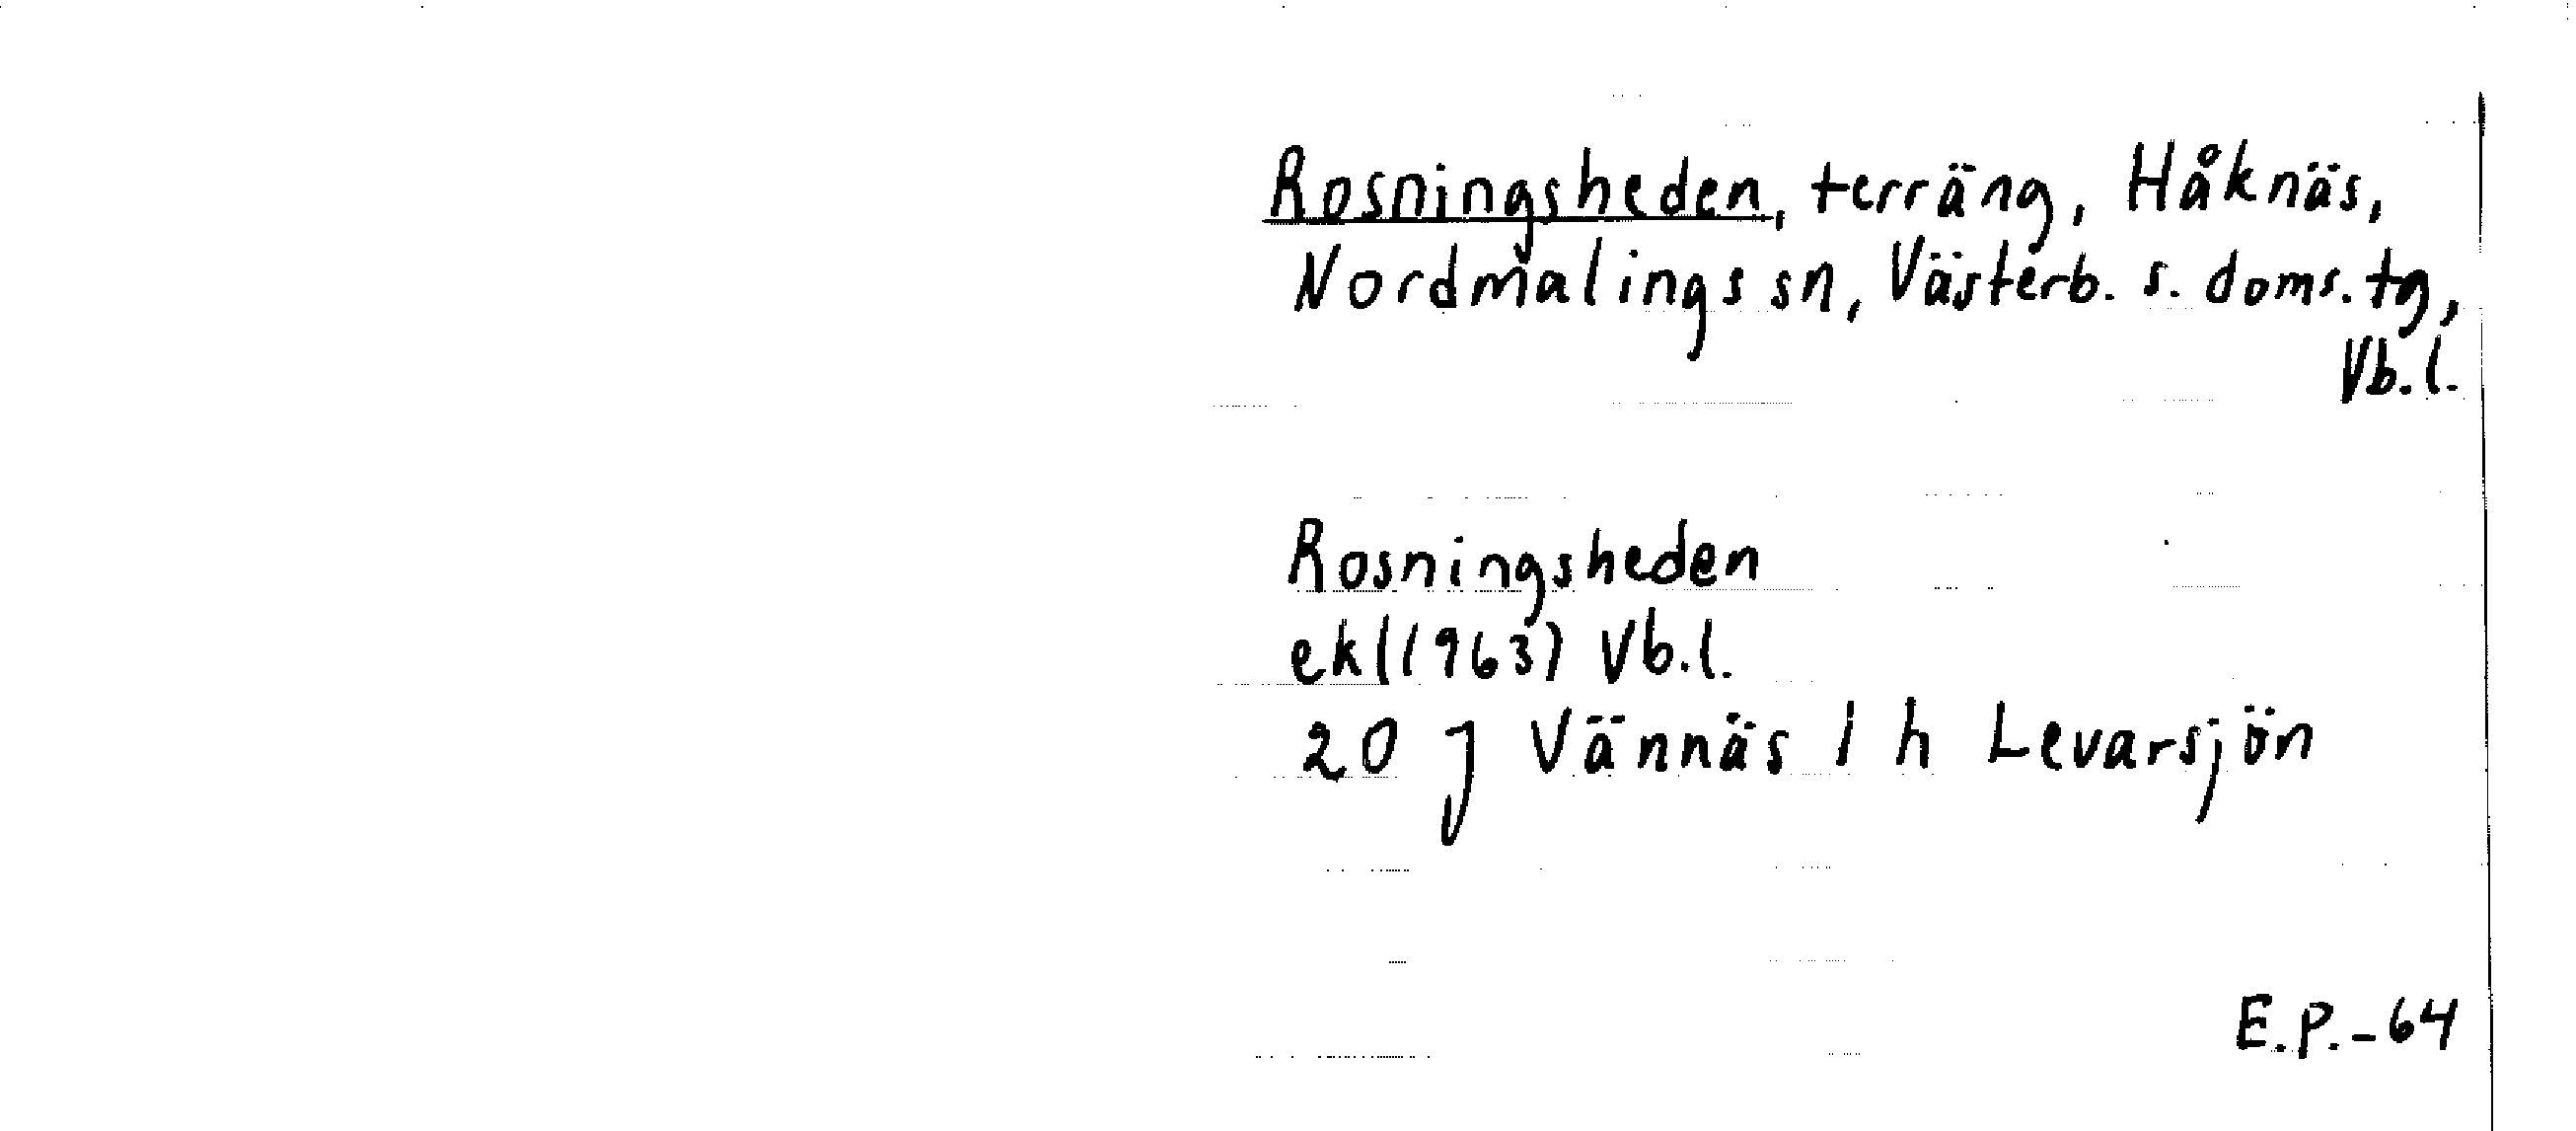 Rosningsheden, terräng, Håknäs,
Nordmalings sn, Västerb. s. doms. tg,
Vb.l.
Rosningsheden
ek(1963) Vb.l.
20 J Vännäs 1 h Levarsjön
E.P.-64